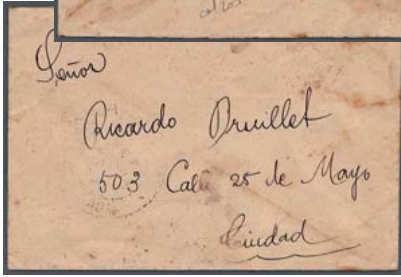 Señor
Ricardo Bruillet
503 Calle 25 de Mayo
Ciudad